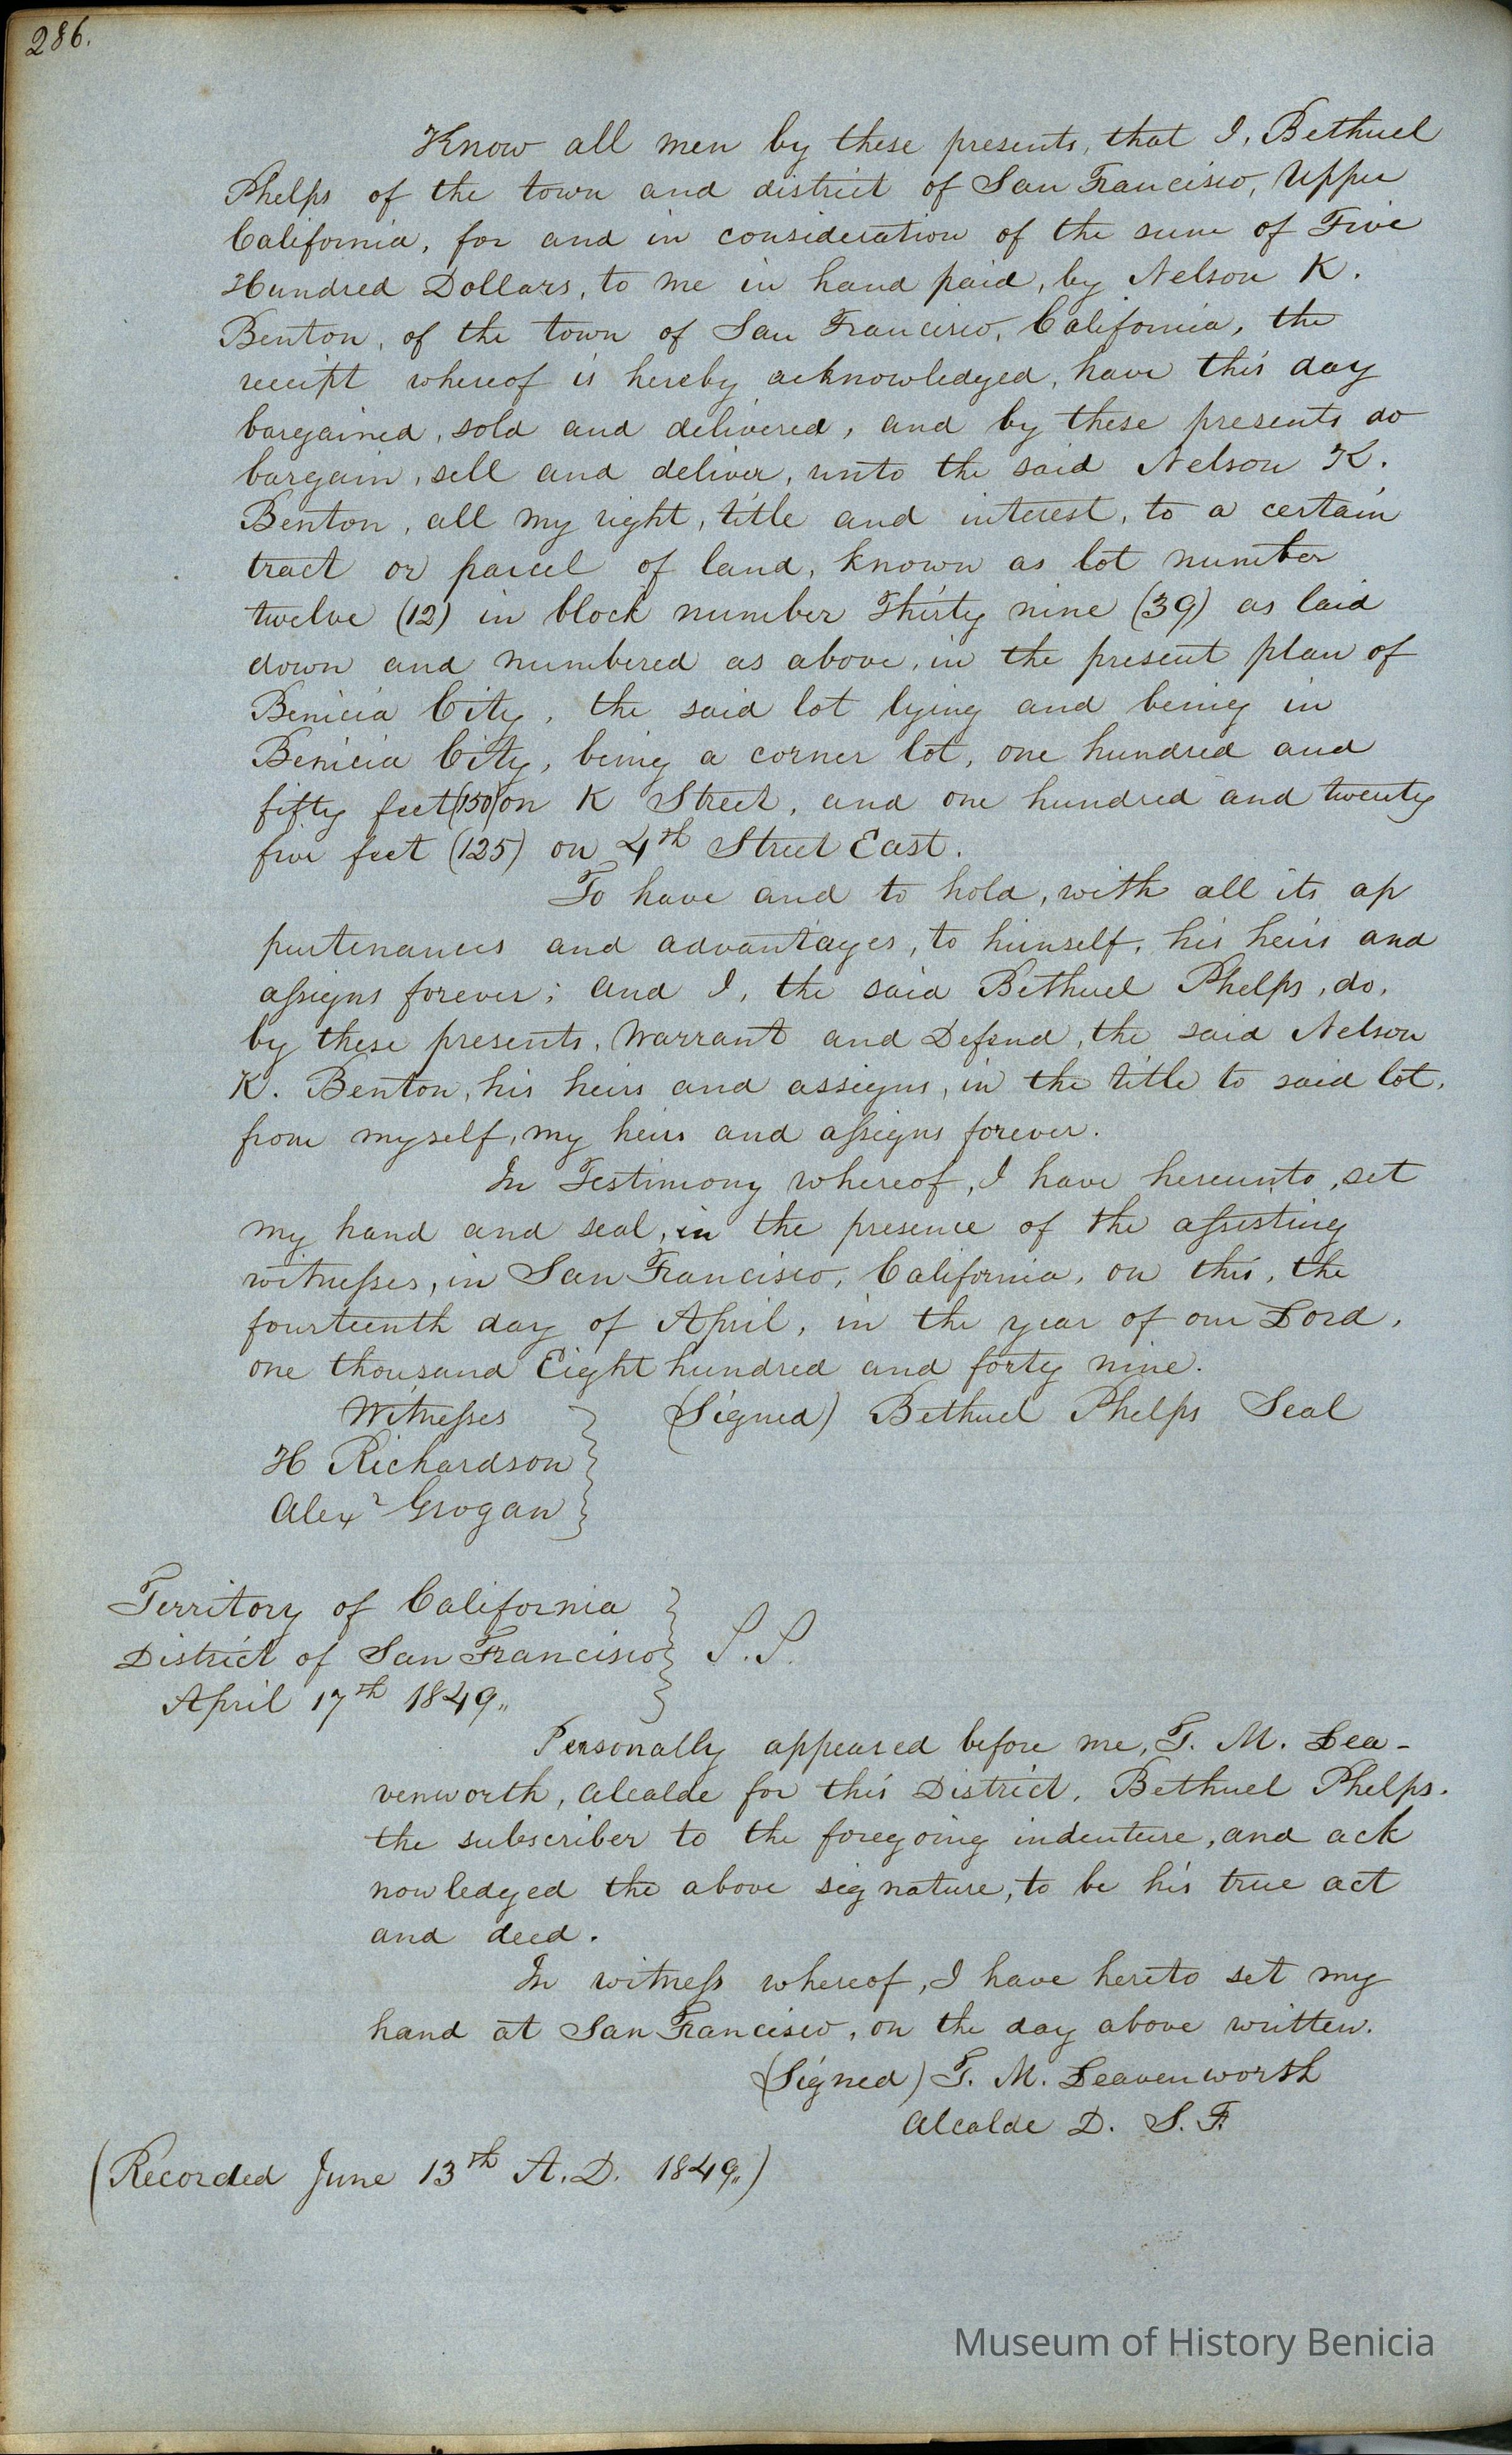 286.
Know all men by these presents, that I, Bethuel
Phelps of the town and district of San Francisco, Upper
California, for and in consideration of the sum of Five
Hundred Dollars, to me in hand paid, by Nelson K.
Benton, of the town of San Francisco, California, the
receipt whereof is hereby acknowledged, have this day
bargained, sold and delivered, and by these presents do
bargain, sell and deliver, unto the said Nelson K.
Benton, all my right, title and interest, to a certain
tract or parcel of land, known as lot number
twelve (12) in block number Thirty nine (39) as laid
down and numbered as above, in the present plan of
Benicia City, the said lot lying and being in
Benicia City, being a corner lot, one hundred and
fifty feet (150) on K Street, and one hundred and twenty
five feet (125) on 4th Street East.
To have and to hold, with all its ap
purtenances and advantages, to himself, his heirs and
assigns forever; and I, the said Bethuel Phelps, do,
by these presents, Warrant and Defend, the said Nelson
K. Benton, his heirs and assigns, in the title to said lot,
from myself, my heirs and assigns forever.
In Testimony whereof, I have hereunto, set
my hand and seal, in the presence of the assisting
witnesses, in San Francisco, California, on this, the
fourteenth day of April, in the year of our Lord,
one thousand Eight hundred and forty nine.
Witnesses (Signed) Bethuel Phelps Seal
H Richardson
Alexr Grogan
Territory of California
District of San Francisco S.S.
April 17th 1849„
Personally appeared before me, T. M. Lea-
venworth, Alcalde for this District, Bethuel Phelps.
the subscriber to the foregoing indenture, and ack
nowledged the above signature, to be his true act
and deed.
In witness whereof, I have hereto set my
hand at San Francisco, on the day above written.
(Signed) T. M. Leavenworth
Alcalde D. S. F.
(Recorded June 13th A.D. 1849„)
Museum of History Benicia